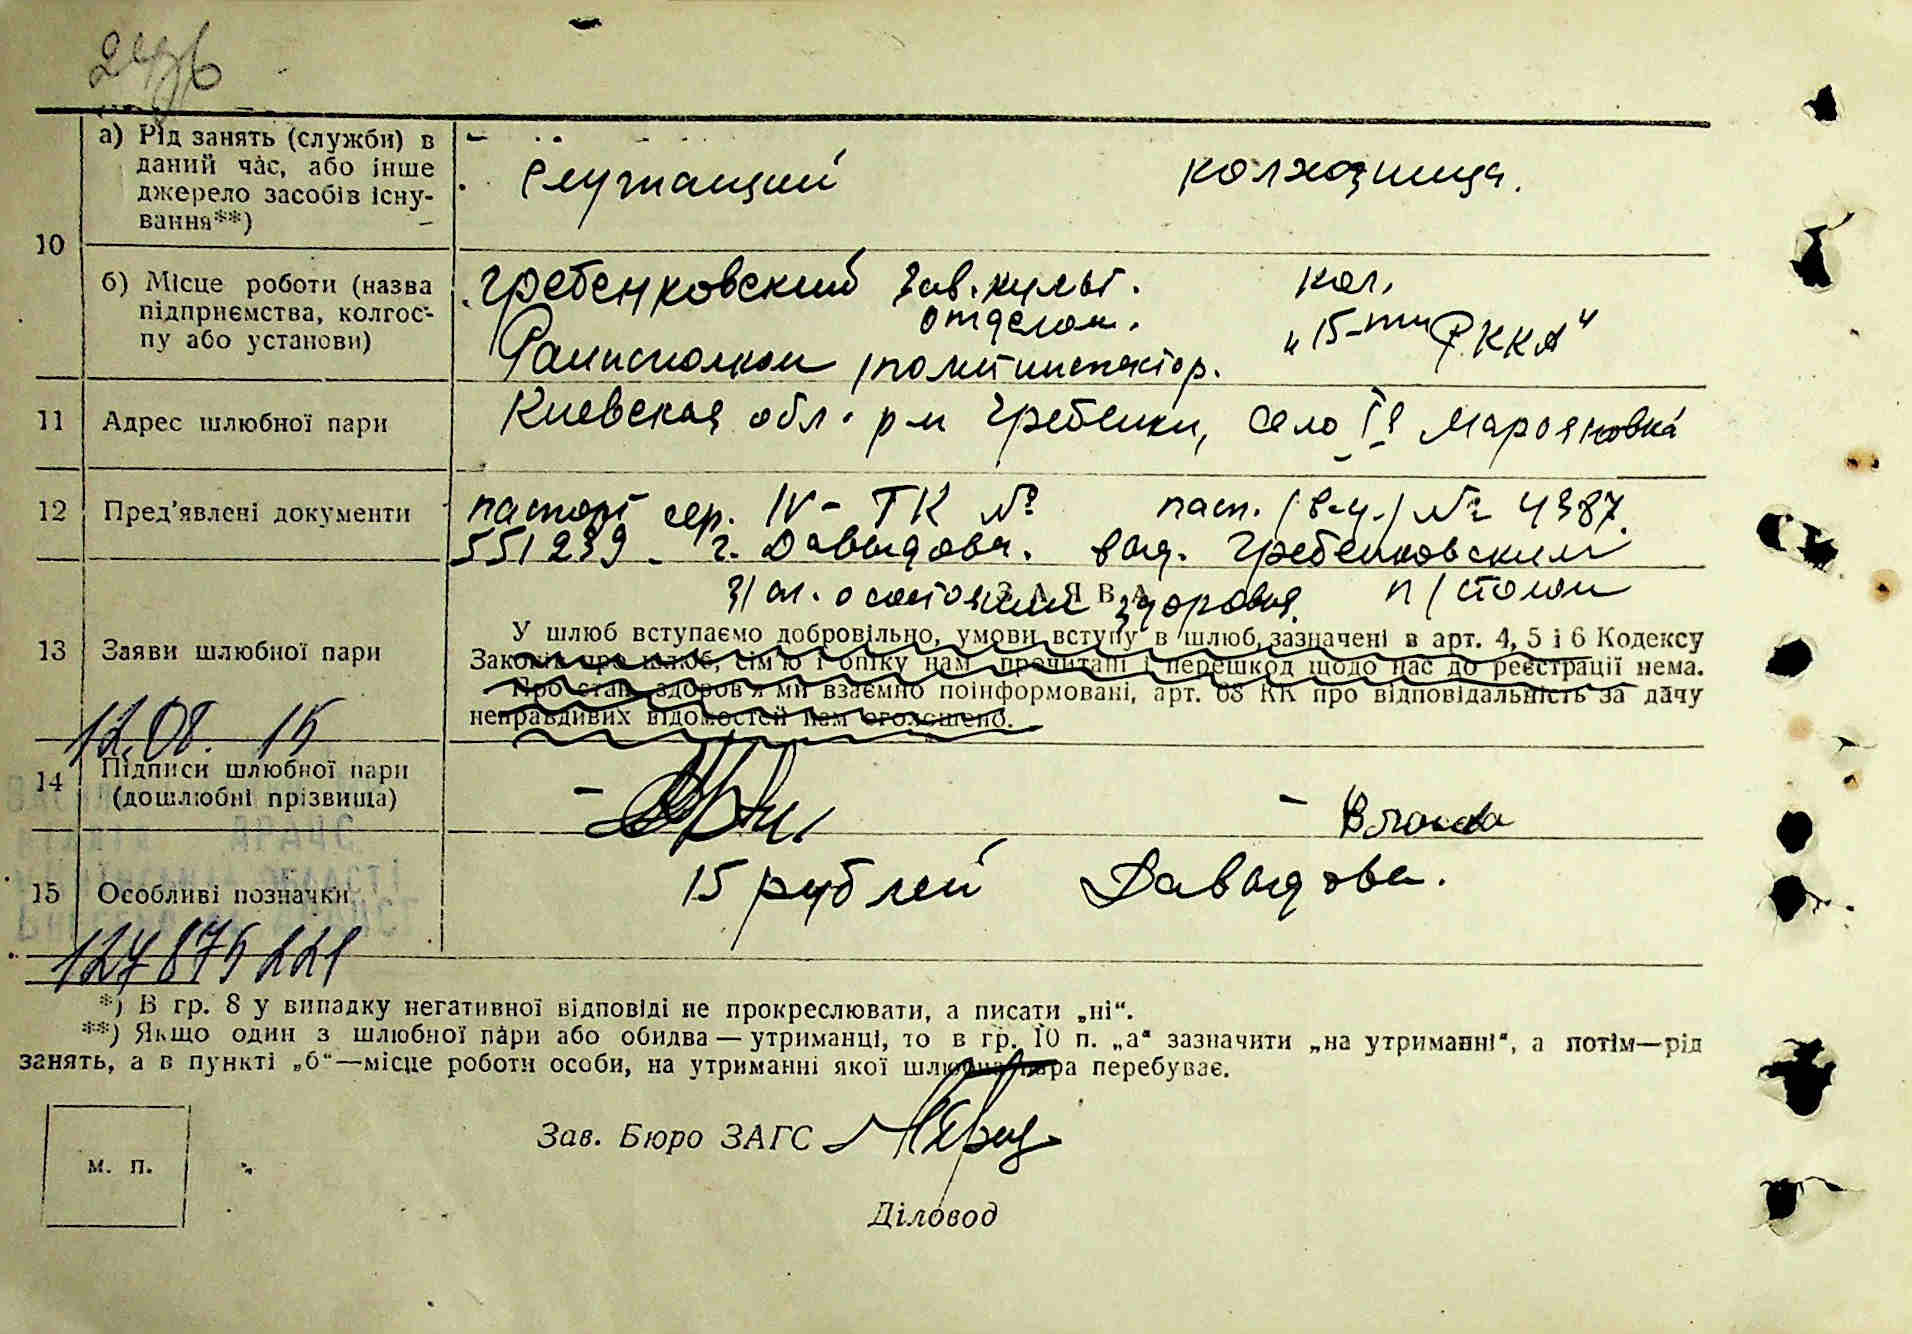 а) Рід занять (служби) в
даний час, або інше
джерело засобів існу-
вання**)
Служащий
колхозница.
10
б) Місце роботи (назва
підприємства, колгос-
пу або установи)
Гребенковский зав. культ.
отделом.
Райисполком, политинспектор.
кол.
"15-ти РККА"
11
Адрес шлюбної пари
Киевская обл. р-н Гребенки, село
12
Пред'явлені документи
паспорт сер. IV-ТК №
551239. г. Давыдова.
пасп. №
4387.
выд. Гребенковским
п/столом
ЗАЯВА
о состоянии здоровья.
13
Заяви шлюбної пари
У шлюб вступаємо добровільно, умови вступу в шлюб, зазначені в арт. 4, 5 і 6 Кодексу
Законів про шлюб, сім'ю і опіку нам прочитані і перешкод щодо нас до реєстрації нема.
Про стан здоров'я ми взаємно поінформовані, арт. 68 КК про відповідальність за дачу
неправдивих відомостей нам оголошено.
12.08. 15
14
Підписи шлюбної пари
(дошлюбні прізвища)
15
Особливі позначки
15 рублей Давыдова.
127875221
*) В гр. 8 у випадку негативної відповіді не прокреслювати, а писати „ні“.
**) Якщо один з шлюбної пари або обидва — утриманці, то в гр. 10 п. „а“ зазначити „на утриманні“, а потім—рід
занять, а в пункті „б“—місце роботи особи, на утриманні якої шлюбна пара перебуває.
Зав. Бюро ЗАГС
м. п.
Діловод